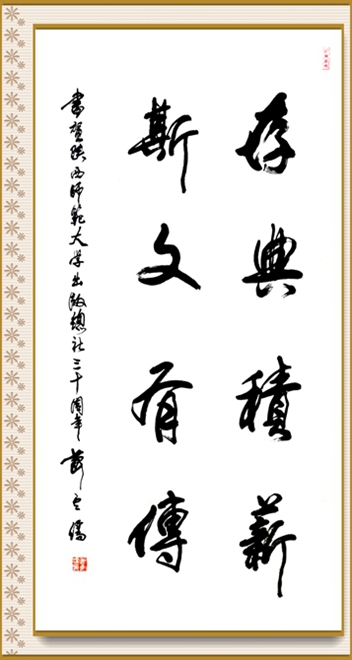 存典積薪
斯文有傳
書賀陝西师範大学出版總社三十周年